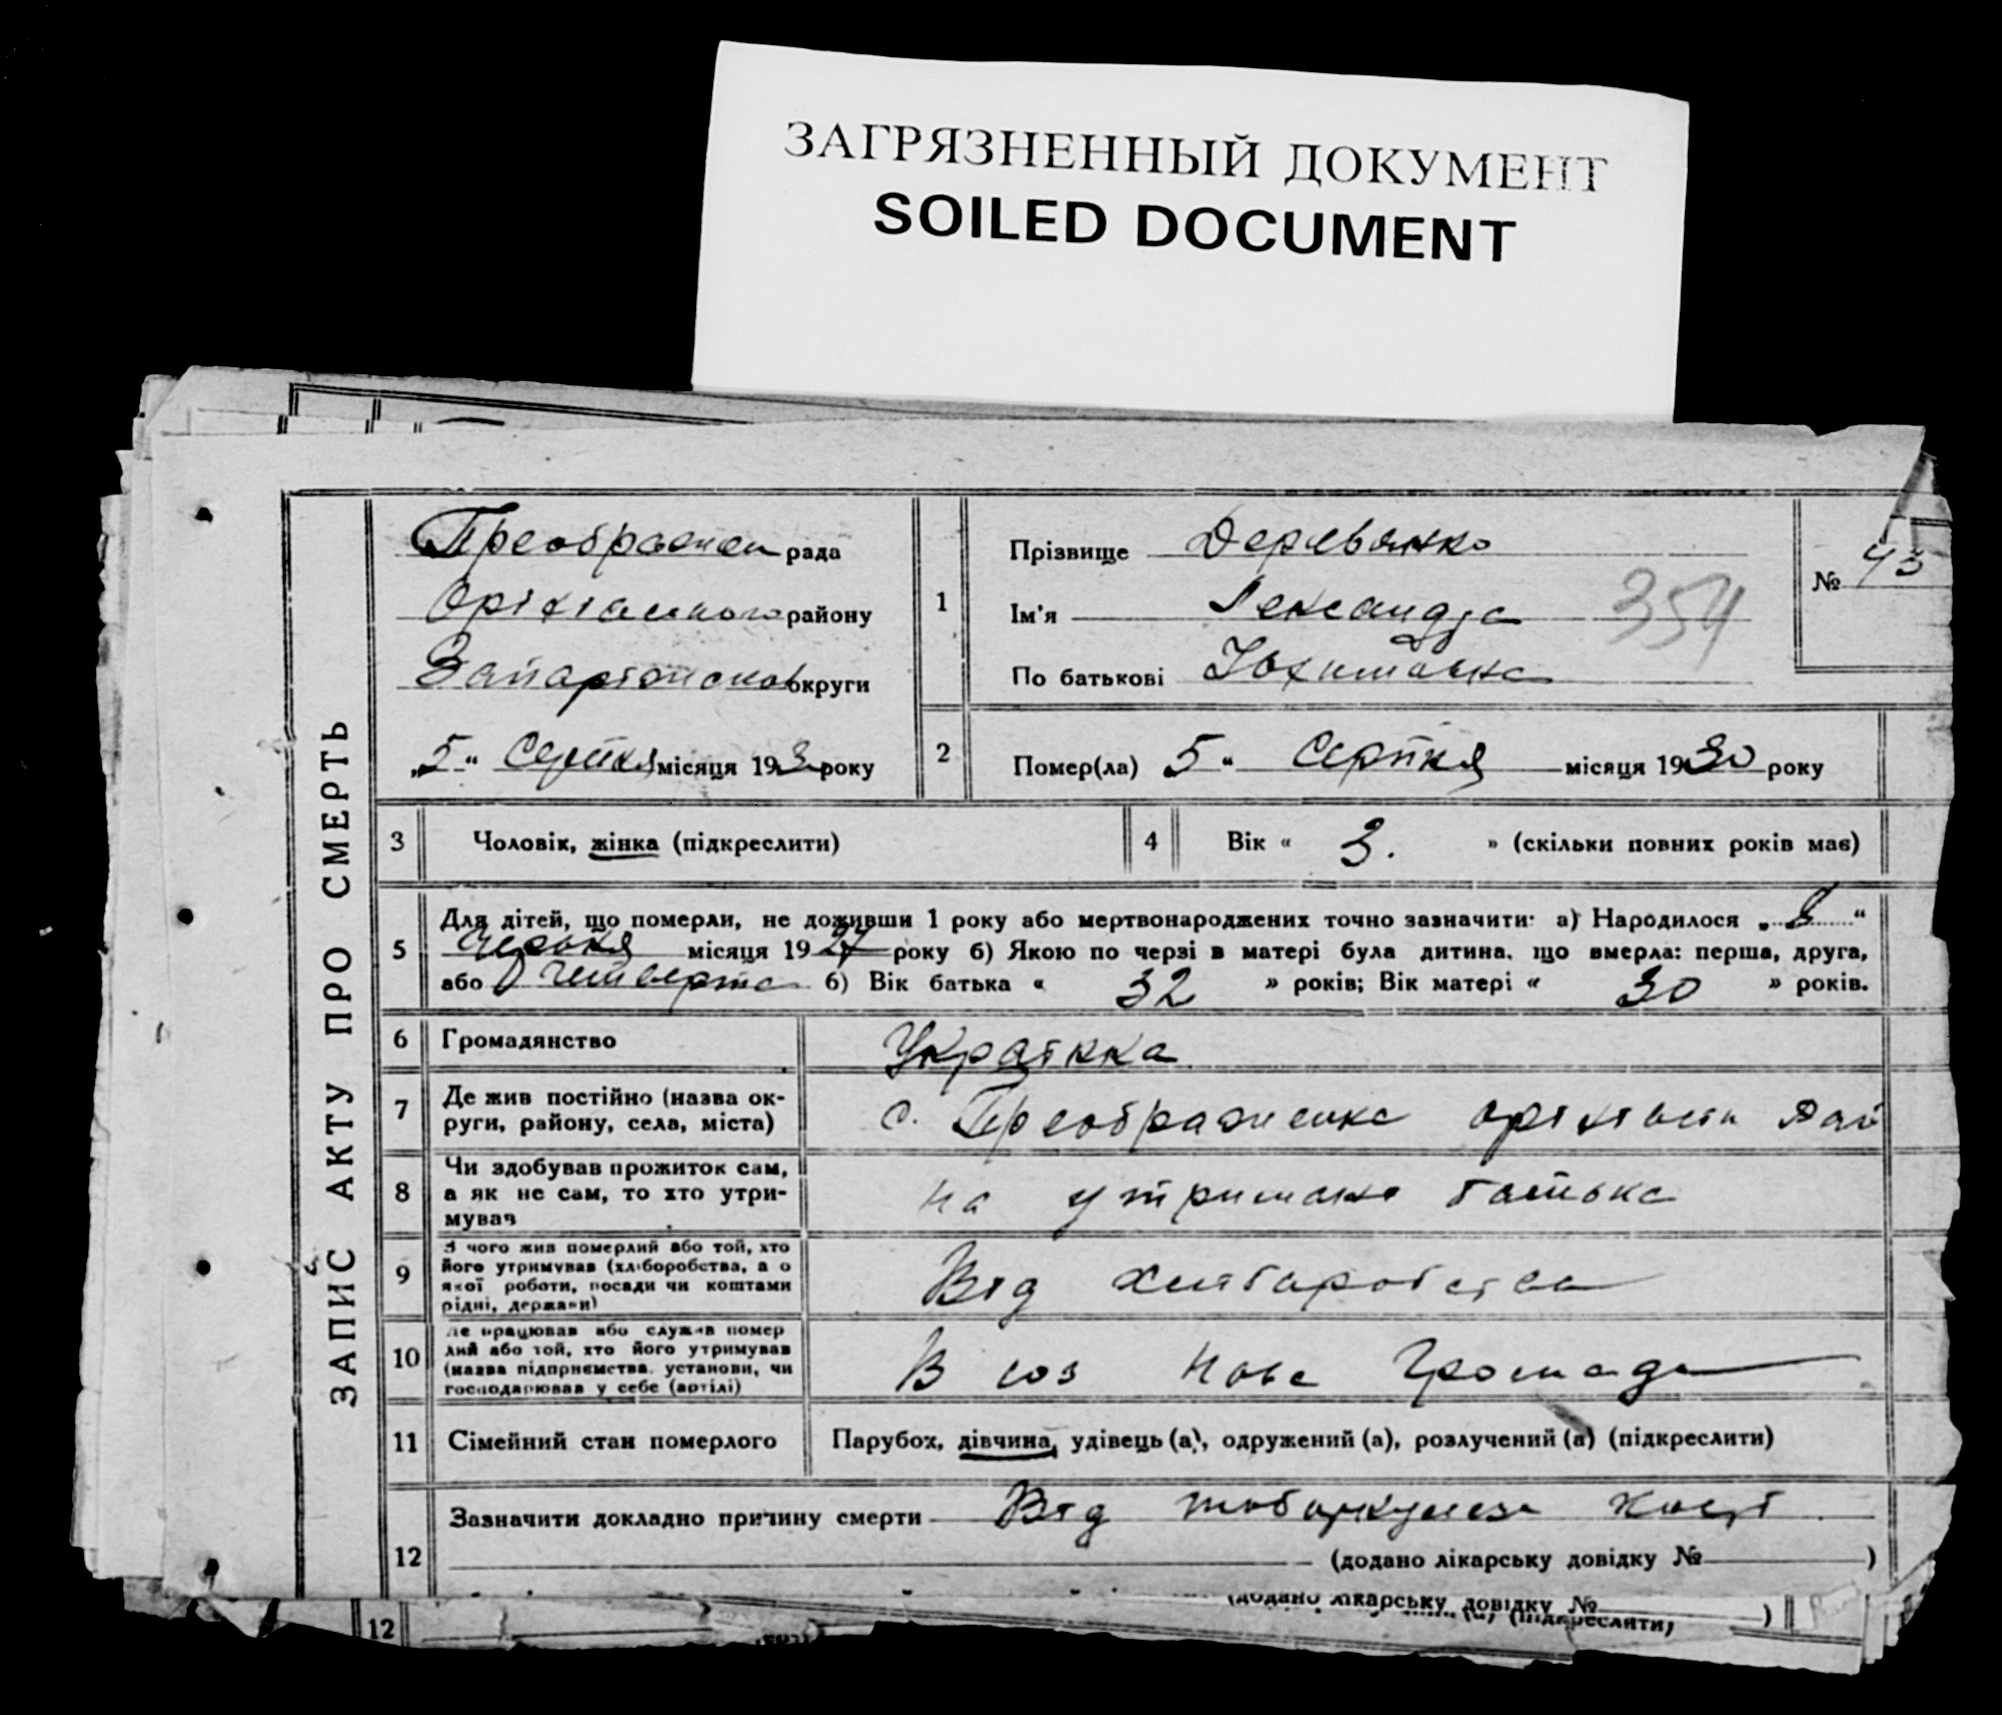 ЗАГРЯЗНЕННЫЙ ДОКУМЕНТ
SOILED DOCUMENT
ЗАПИС АКТУ ПРО СМЕРТЬ
Преображен рада
Оріхівського району
округи
„5“ Серпня місяця 193 року
1
Прізвище Деревьянко
Ім'я Лександра
По батькові
354
№ 43
2
Помер(ла) 5 “ Серпня місяця 1930 року
3 Чоловік, жінка (підкреслити)
4 Вік « 3. » (скільки повних років має)
5 Для дітей, що померли, не доживши 1 року або мертвонароджених точно зазначити: а) Народилося „ 8 “
Червня місяця 1927 року б) Якою по черзі в матері була дитина, що вмерла: перша, друга,
або четверта б) Вік батька « 32 » років; Вік матері « 30 » років.
6 Громадянство Українка
7 Де жив постійно (назва ок-
руги, району, села, міста)
с. Преображенка оріхівськ Рай
8 Чи здобував прожиток сам,
а як не сам, то хто утри-
мував
на утримані батька
9 З чого жив померлий або той, хто
його утримував (хліборобства, а о
якої роботи, посади чи коштами
рідні, держави)
Від хліборобства
10 Де працював або служив помер
лий або той, хто його утримував
(назва підприємства, установи, чи
господарював у себе (артілі)
В соз Нова Громада
11 Сімейний стан померлого
Парубох, дівчина, удівець (а), одружений (а), розлучений (а) (підкреслити)
12 Зазначити докладно причину смерти Від
(додано лікарську довідку № )
(додано лікарську довідку № )
(підкреслити)
12